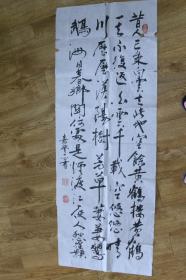 昔人已乘黄鶴去此地空餘黄鶴樓黄鶴
一去不復返白雲千載空悠悠晴
川歷歷漢陽樹芳草萋萋鸚
鵡洲日暮鄉關何處是煙波江上使人愁
書